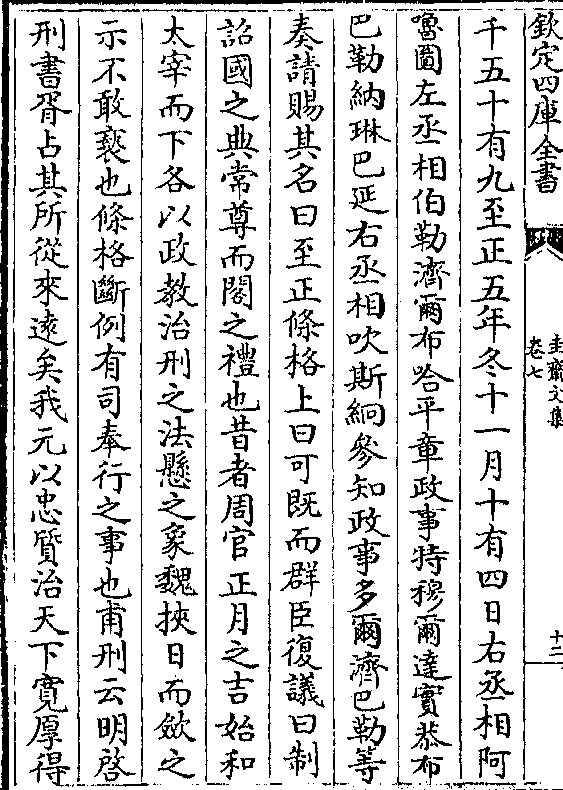 欽定四庫全書
圭齋文集
卷七
十二
千五十有九至正五年冬十一月十有四日右丞相阿
嚕圖左丞相伯勒濟爾布哈平章政事特穆爾達實恭布
巴勒納琳巴延右丞相吹斯絅參知政事多爾濟巴勒等
奏請賜其名曰至正條格上曰可既而群臣復議曰制
詔國之典常尊而閣之禮也昔者周官正月之吉始和
太宰而下各以政教治刑之法懸之象魏挾日而斂之
示不敢褻也條格斷例有司奉行之事也甫刑云明啓
刑書胥占其所從來遠矣我元以忠質治天下寬厚得